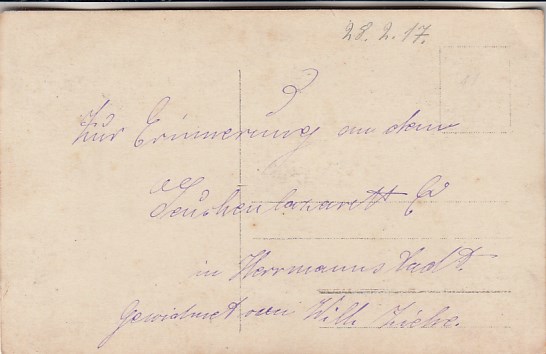 28.2.17.
Zur Erinnerung an dem
Seuchenlazarett
in Herrmannstadt.
Gewidmet von Wilh.